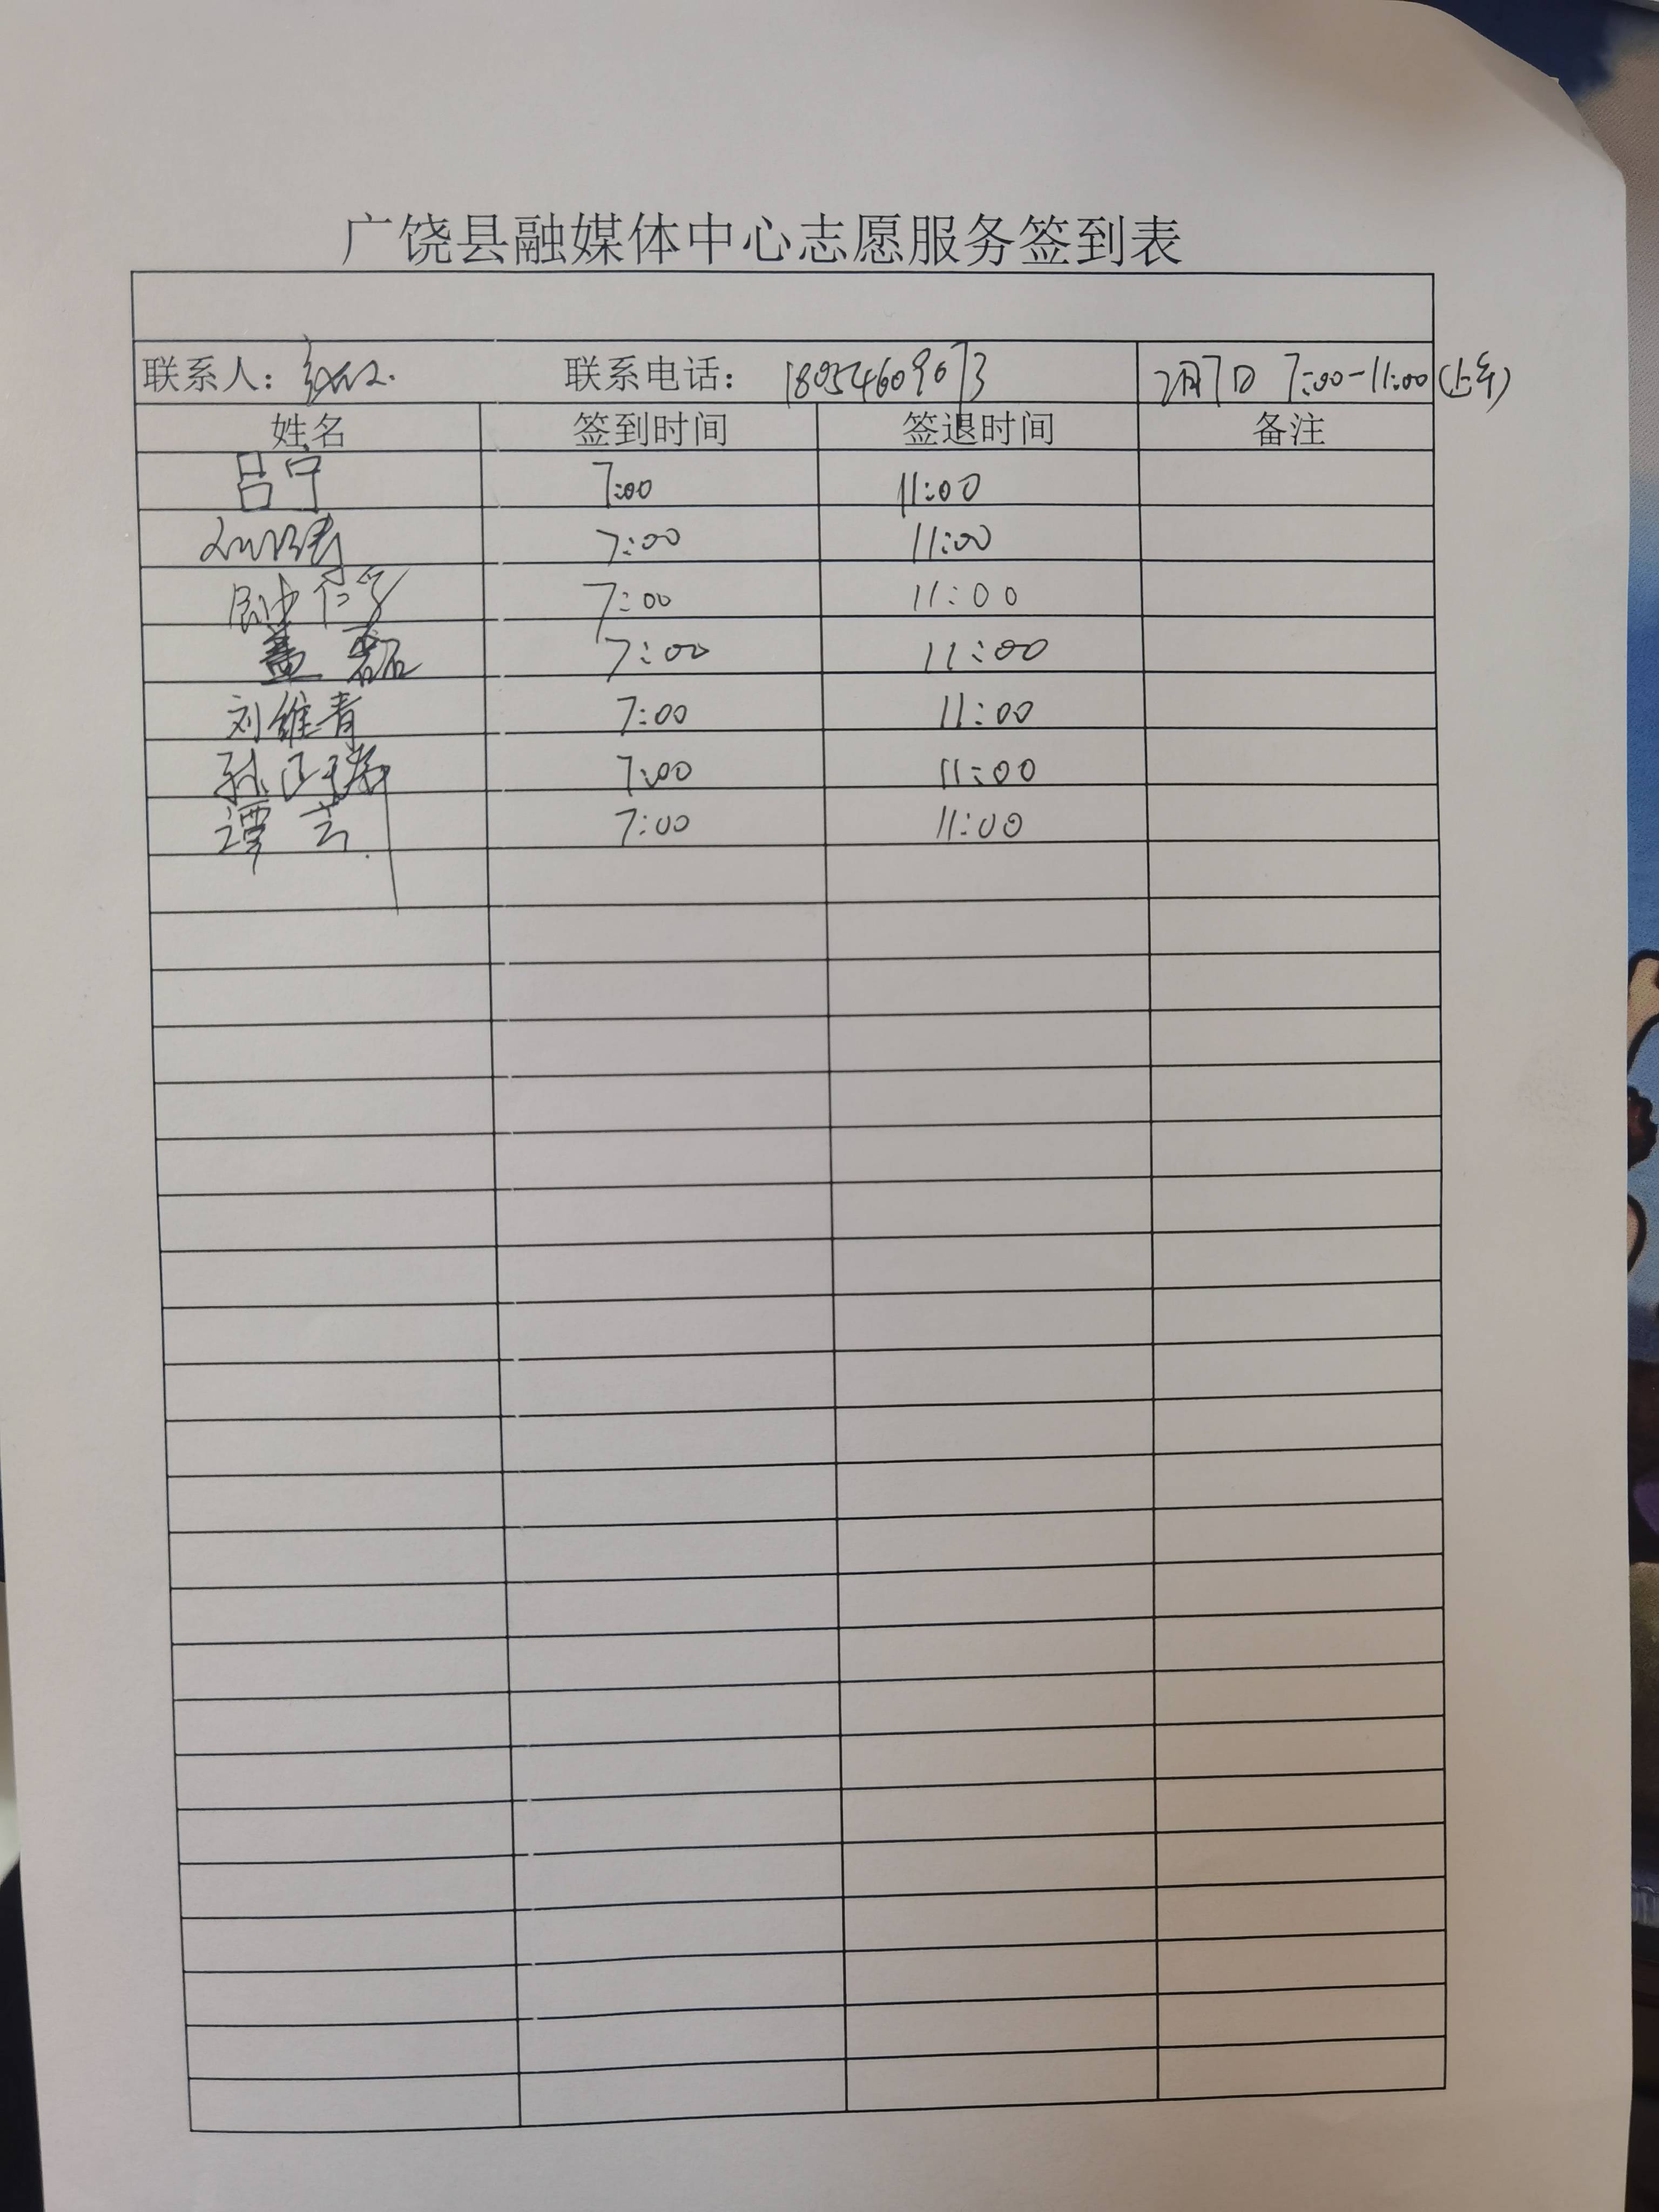 广饶县融媒体中心志愿服务签到表
联系人： 联系电话：18054609073 2月7日 7:00-11:00(上午)
姓名 签到时间 签退时间 备注
吕宁 7:00 11:00
7:00 11:00
7:00 11:00
盖磊 7:00 11:00
刘维青 7:00 11:00
孙正瑞 7:00 11:00
谭云 7:00 11:00